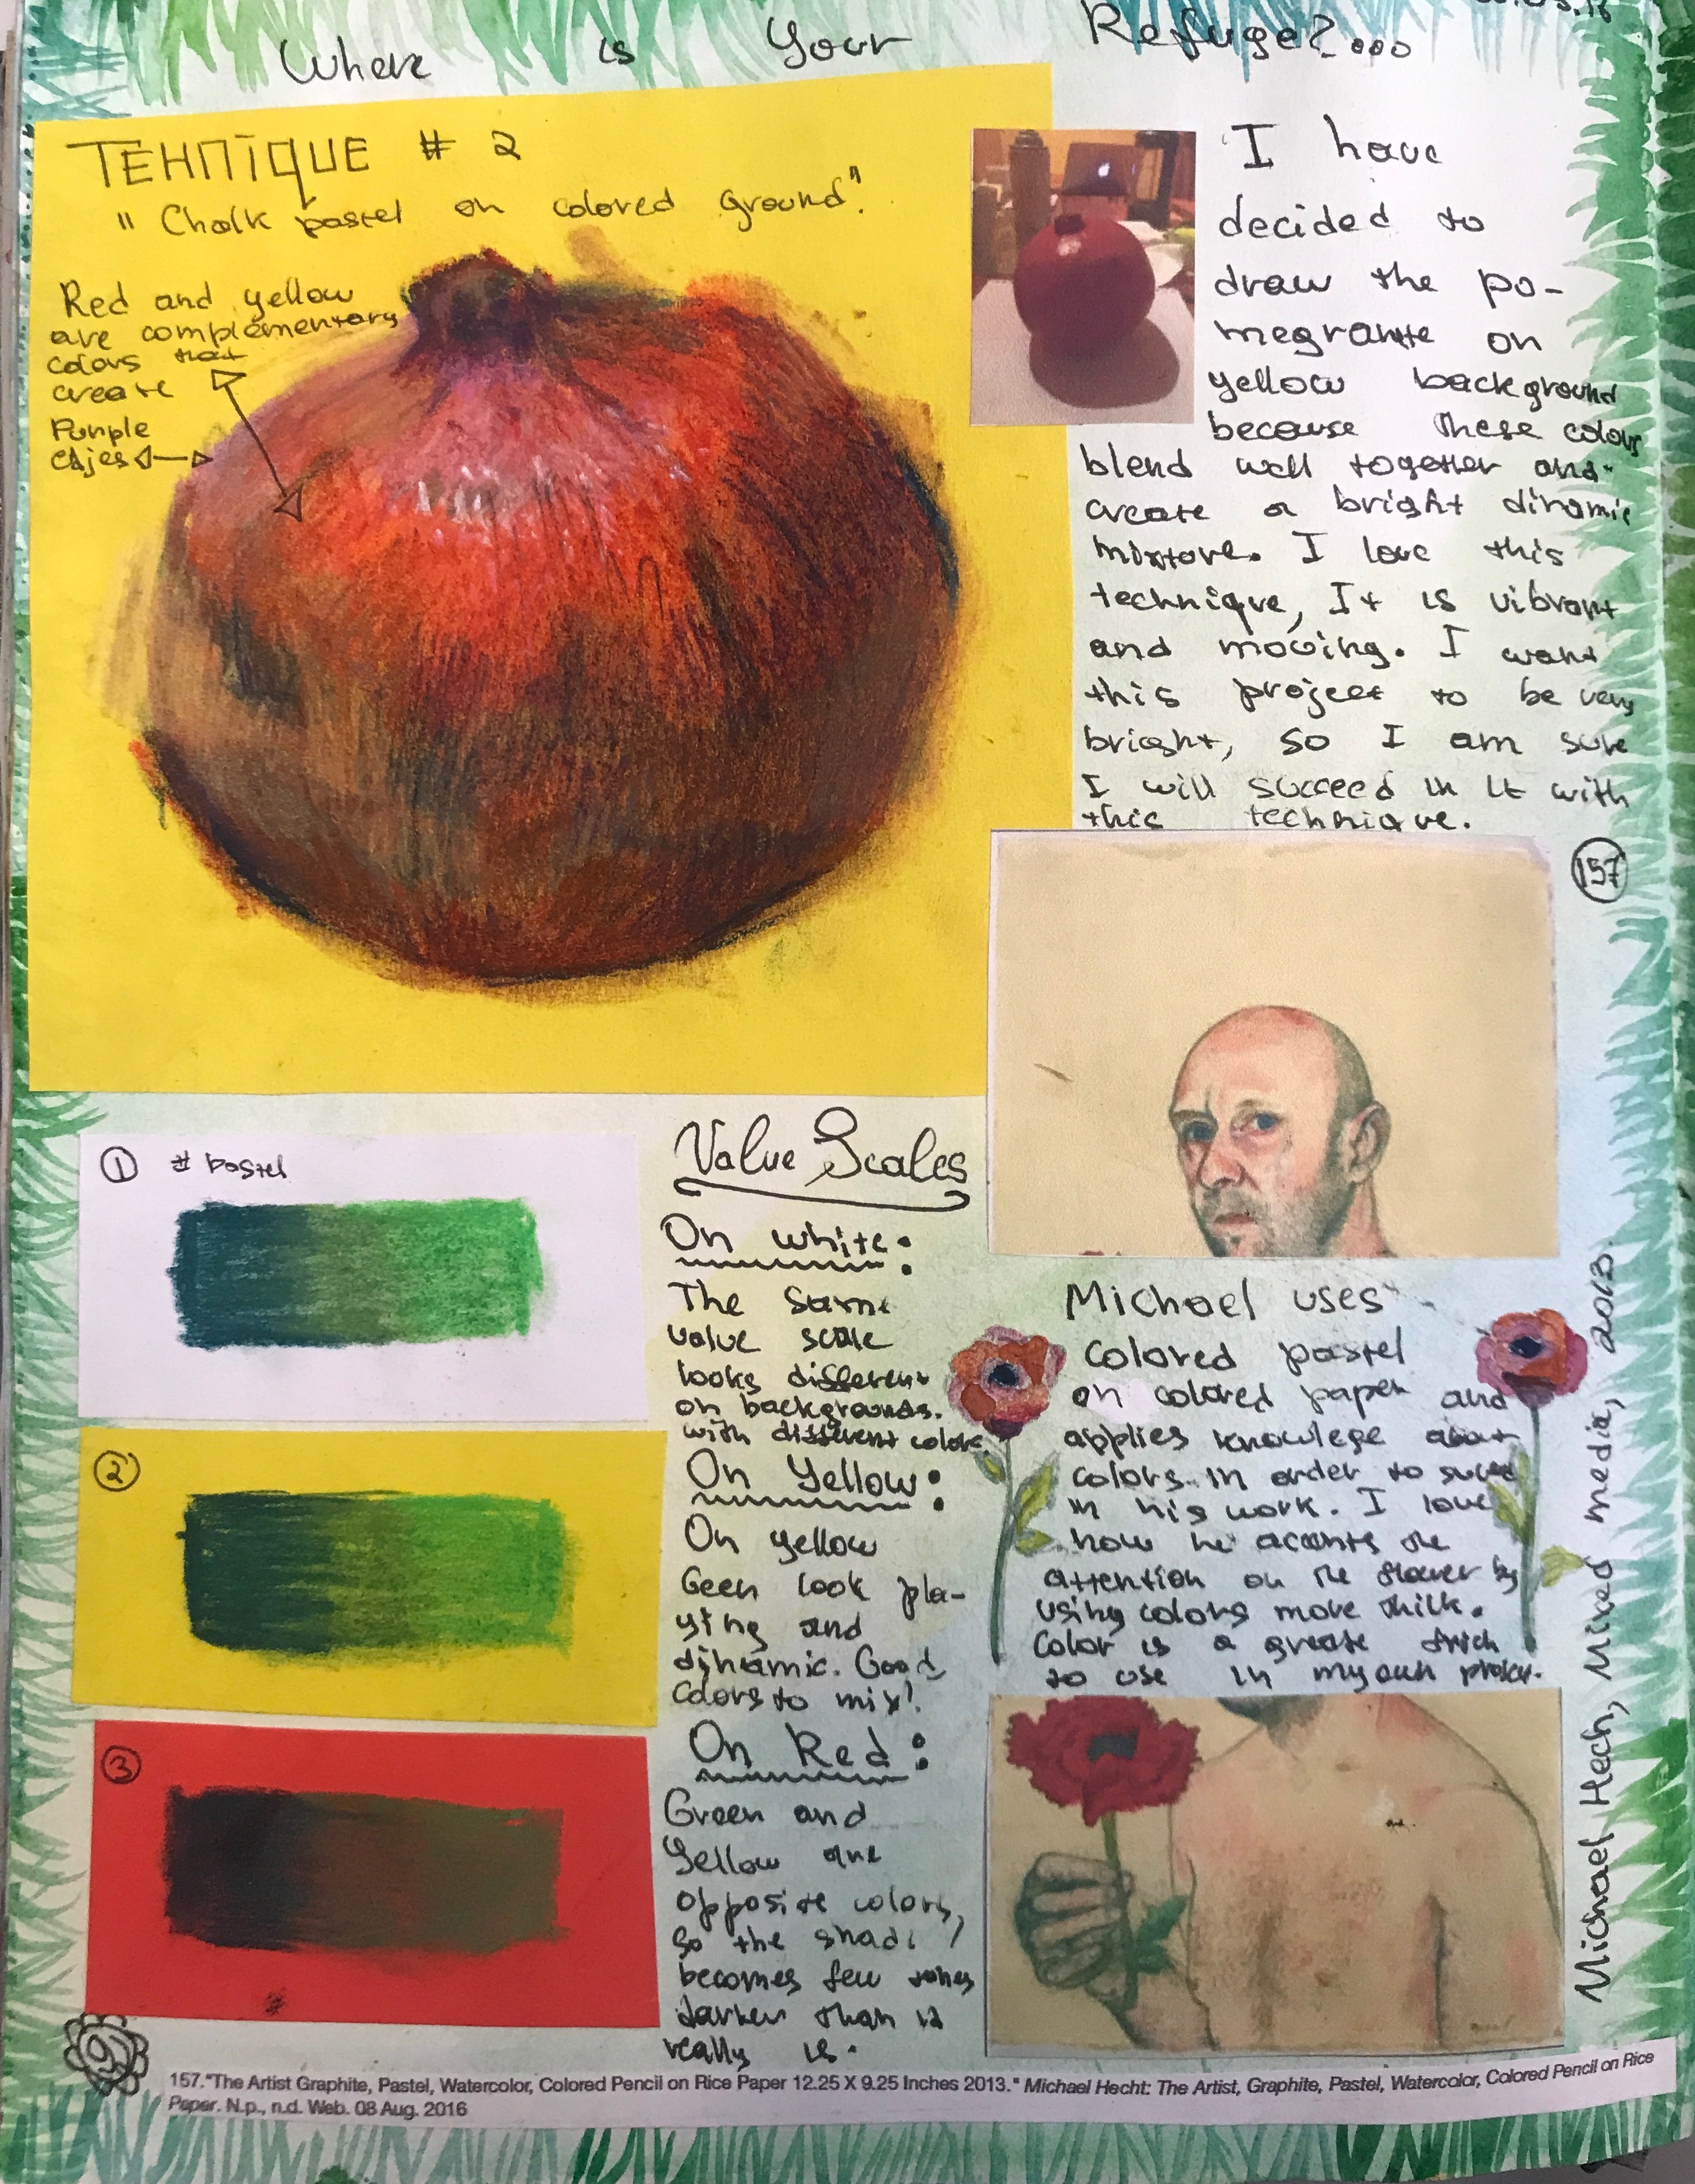 Where is Your Refuge?...
TEHNIQUE # 2
" Chalk pastel on colored ground".
Red and yellow
are complementary
colors that
create
Purple
edjes
I have
decided to
draw the po-
megrante on
yellow background
because these colors
blend well together and
create a bright dinamic
mixture. I love this
technique, It is vibrant
and mooing. I want
this project to be very
bright, so I am sure
I will succeed in it with
this technique.
157
① # pastel
②
③
Value Scales
On white:
The same
value scale
looks different
on backgrounds.
with different colors.
On Yellow:
On yellow
Geen look pla-
ying and
dinamic. Good
Colors to mix!
On Red:
Green and
Yellow are
opposite colors,
so the shade
becomes few tones
darker than it
really is.
Michael uses
colored pastel
on colored paper and
applies knowlege about
colors in order to
in his work. I love
how he accents the
attention on the flower by
using colors more thik.
Color is a greate
to use in my own
Michael Hech, Mixed media, 2013.
157."The Artist Graphite, Pastel, Watercolor, Colored Pencil on Rice Paper 12.25 X 9.25 Inches 2013." Michael Hecht: The Artist, Graphite, Pastel, Watercolor, Colored Pencil on Rice
Paper. N.p., n.d. Web. 08 Aug. 2016